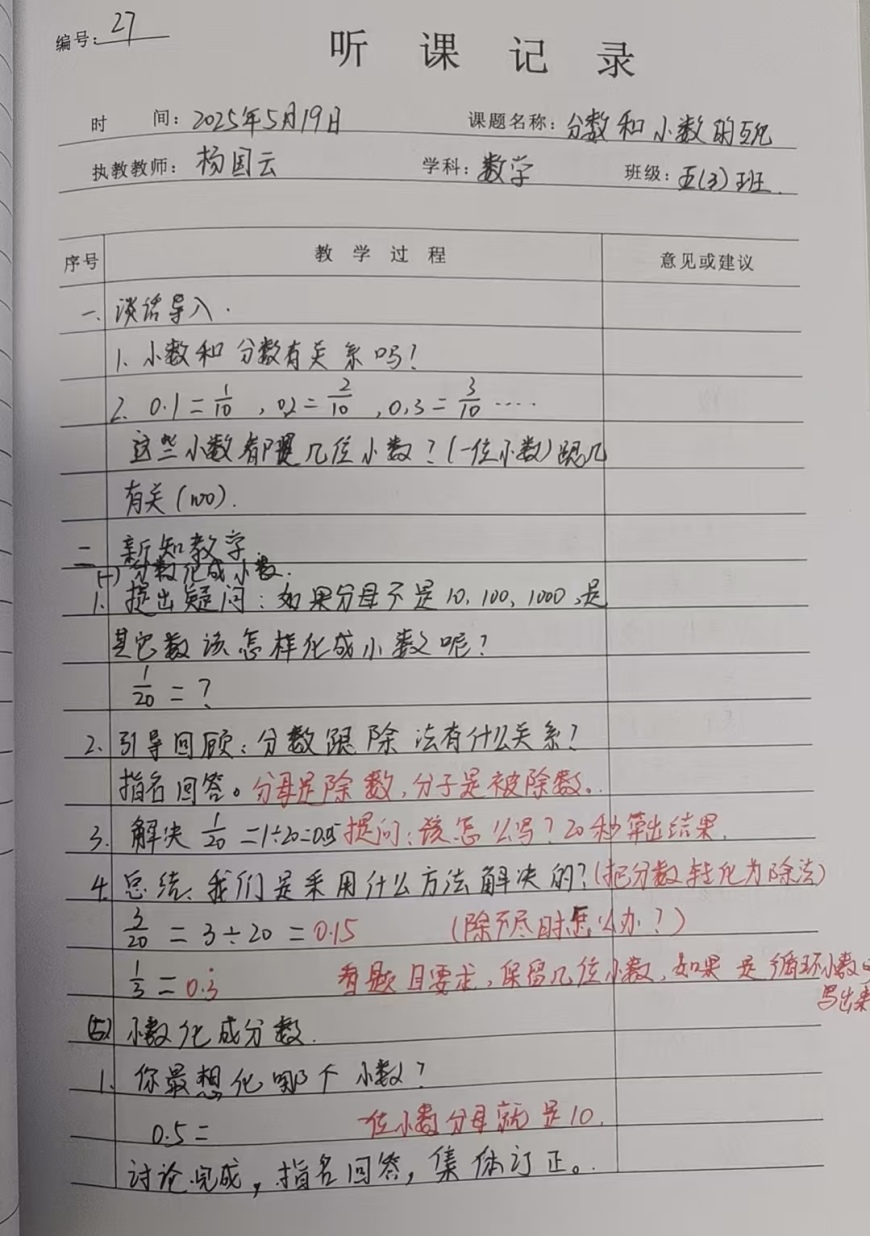 编号: 27
听 课 记 录
时 间: 2025年5月19日 课题名称: 分数和小数的互化
执教教师: 杨国云 学科: 数学 班级: 五(3)班.
序号 教 学 过 程 意见或建议
一. 谈话导入.
1. 小数和分数有关系吗?
2. 0.1=1/10 , 0.2=2/10 , 0.3=3/10 ····
这些小数都是几位小数?(一位小数)跟几
有关(100).
二 新知教学.
(一)分数化成小数.
1. 提出疑问: 如果分母不是10, 100, 1000,是
其它数该怎样化成小数呢?
1/20 = ?
2. 引导回顾: 分数跟除法有什么关系?
指名回答。分母是除数,分子是被除数.
3. 解决 1/20 =1÷20=0.05 提问: 该怎么写? 20秒算出结果.
4. 总结、我们是采用什么方法解决的?(把分数转化为除法)
3/20 = 3÷20 = 0.15 (除不尽时怎么办?)
1/3 = 0.3̇ 看题目要求,保留几位小数,如果是循环小数
写出来
小数化成分数.
1. 你最想化哪个小数?
0.5= 一位小数分母就是10.
讨论完成, 指名回答, 集体订正。